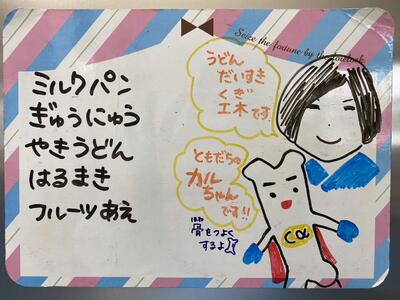 Seize the fortune by the forelock.
ミルクパン
ぎゅうにゅう
やきうどん
はるまき
フルーツあえ
うどん
だいすき
くぎ
工木です。
ともだちの
カル
ちゃん
です!!
ほね
骨をつよく
するよ
Ca